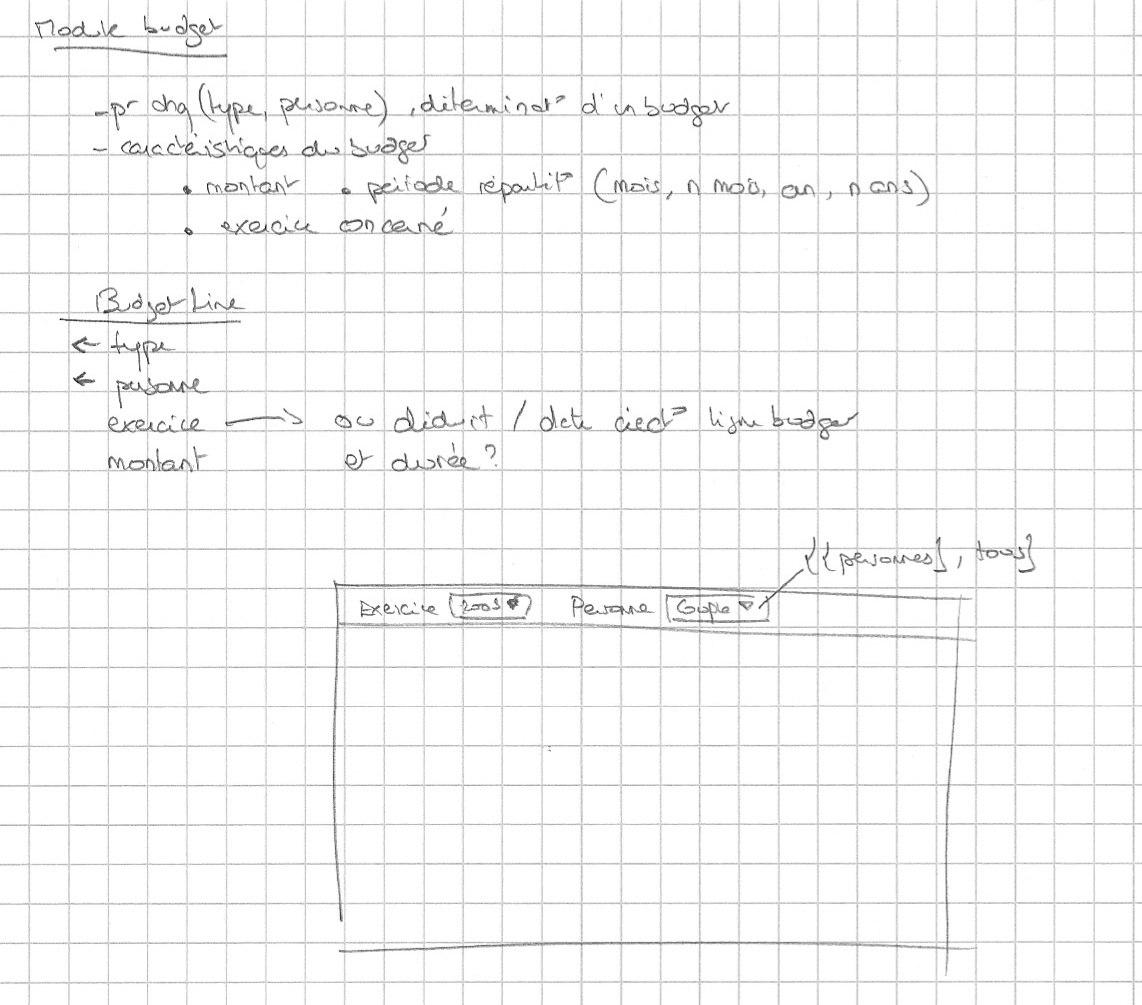 Module budget
- pr chq (type, personne), déterminat° d'un budget
- caractéristiques du budget
• montant • période répartit° (mois, n mois, an, n ans)
• exercice concerné
Budget Line
← type
← personne
exercice → ou déduit / date créat° ligne budget
montant et durée ?
{{personnes}, tous}
Exercice Personne Couple